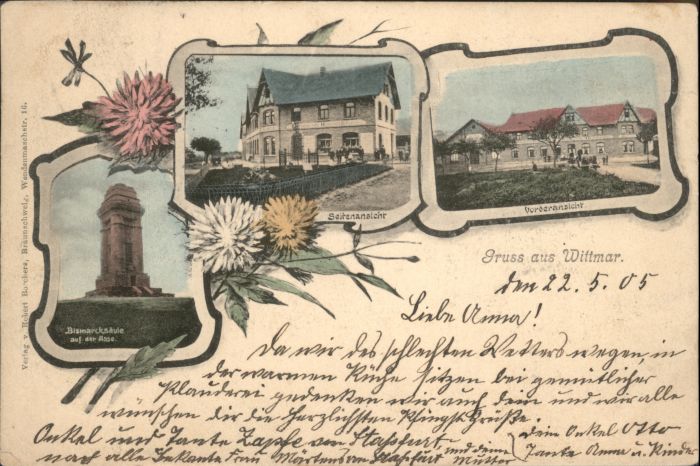 Seitenansicht
Vorderansicht
Bismarcksäule
auf der Asse.
Verlag v. Robert Borchers, Braunschweig, Wendenmaschstr. 16.
Gruss aus Wittmar.
den 22. 5. 05
Liebe Anna!
Da wir des schlechten Wetters wegen, in
der warmen Küche sitzen bei gemütlicher
Plauderei gedenken wir auch dein und wir alle
wünschen dir die herzlichsten Pfingst Grüße.
Onkel und Tante Zapfe von Stassfurt
nach alle Bekante Frau Märtens von Stassfurt und deine Mutter
dein Onkel Otto
Tante Anna u. Kinder